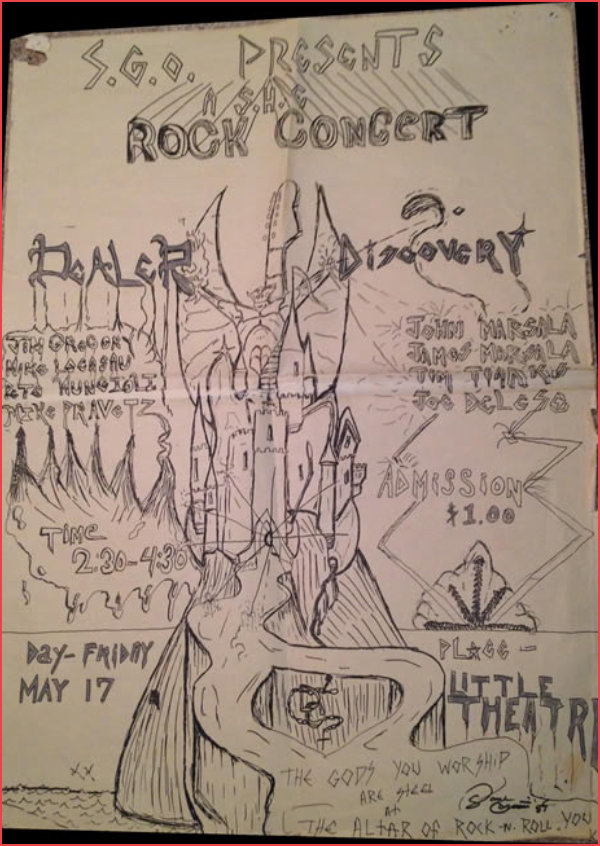 S.G.O. PRESENTS
A S.H.E
ROCK CONCERT
DEALER
DISCOVERY
JIM GREGORY
MIKE
MIKE PRAVETZ
JOHN MARSALA
JAMES MARSALA
TIM
JOE DELESO
ADMISSION
$1.00
TIME
2:30-4:30
DAY-FRIDAY
MAY 17
PLACE-
LITTLE
THEATRE
THE GODS YOU WORSHIP
ARE STEEL
AT
THE ALTAR OF ROCK-N-ROLL YOU
XX